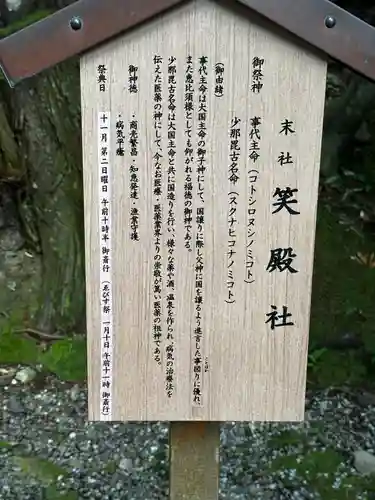 末社 笑殿社
御祭神 事代主命（コトシロヌシノミコト）
少那毘古名命（スクナヒコナノミコト）
（御由緒）
事代主命は大国主命の御子神にして、国譲りに際し父神に国を譲るよう進言した事図りに優れ、
また恵比須様としても仰がれる福徳の御神である。
少那毘古名命は大国主命と共に国造りを行い、様々な薬や酒、温泉を作られ、病気の治療法を
伝えた医薬の神にして、今なお医療・医薬業界よりの崇敬が篤い医薬の祖神である。
御神徳 ・商売繁昌・知恵発達・漁業守護
・病気平癒
祭典日 十一月 第二日曜日 午前十時半 御斎行 （ゑびす祭 一月十日 午前十一時 御斎行）